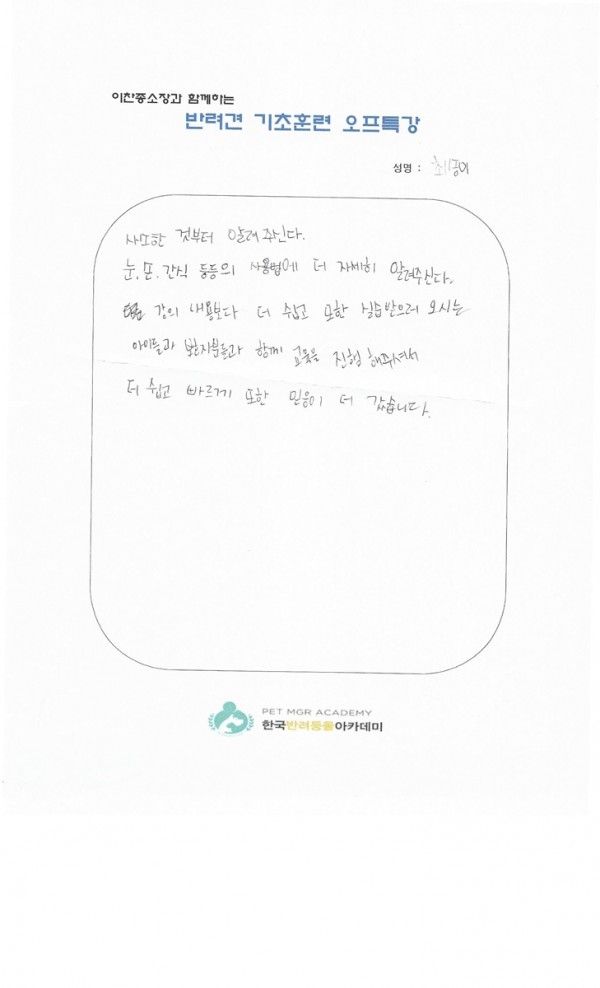 이찬종소장과 함께하는
반려견 기초훈련 오프특강
성명 :
사소한 것부터 알려주신다.
눈, 손, 간식 등등의 사용법에 더 자세히 알려주신다.
강의 내용보다 더 쉽고 또한 실습받으러 오시는
아이들과 보호자분들과 함께 교육을 진행 해주셔서
더 쉽고 빠르게 또한 믿음이 더 갔습니다.
PET MGR ACADEMY
한국반려동물아카데미